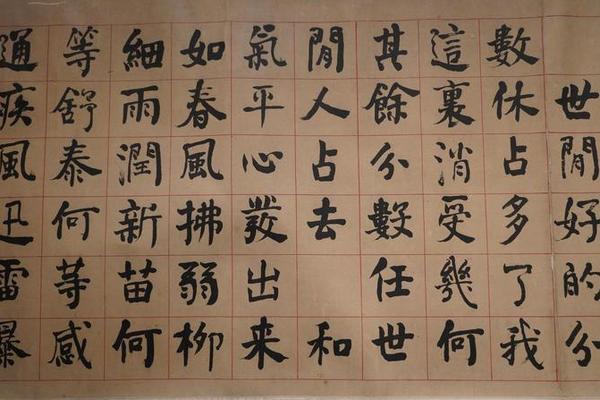 世閒好的分
數休占多了我
這裏消受幾何
其餘分數任世
閒人占去 和
氣平心發出来
如春風拂弱柳
細雨潤新苗何
等舒泰何等感
通疾風迅雷暴